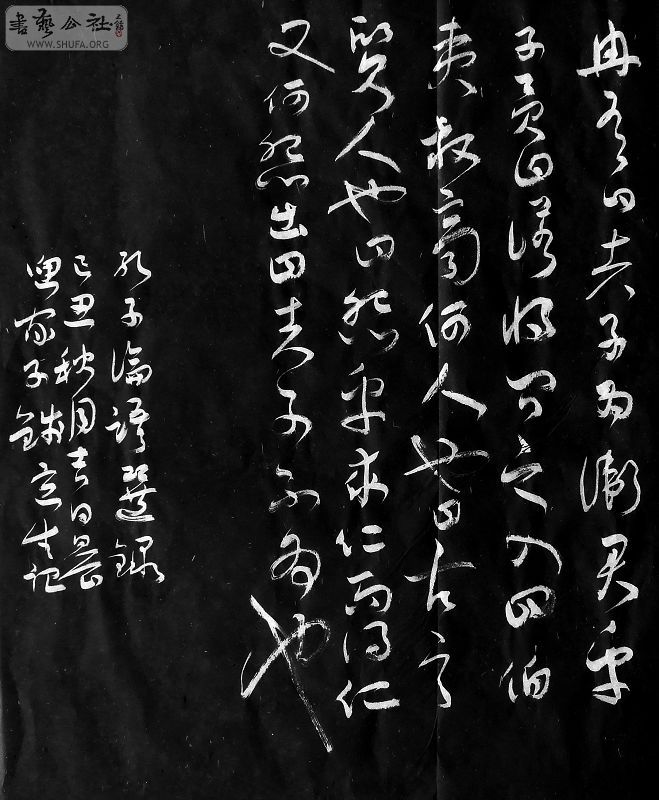 書藝公社
WWW.SHUFA.ORG
冉有曰夫子為衛君乎
子貢曰諾將問之入曰伯
夷叔齊何人也曰古之
賢人也曰怨乎求仁而得仁
又何怨出曰夫子不為也
孔子論語選錄
己丑秋月吉日晨
子生記